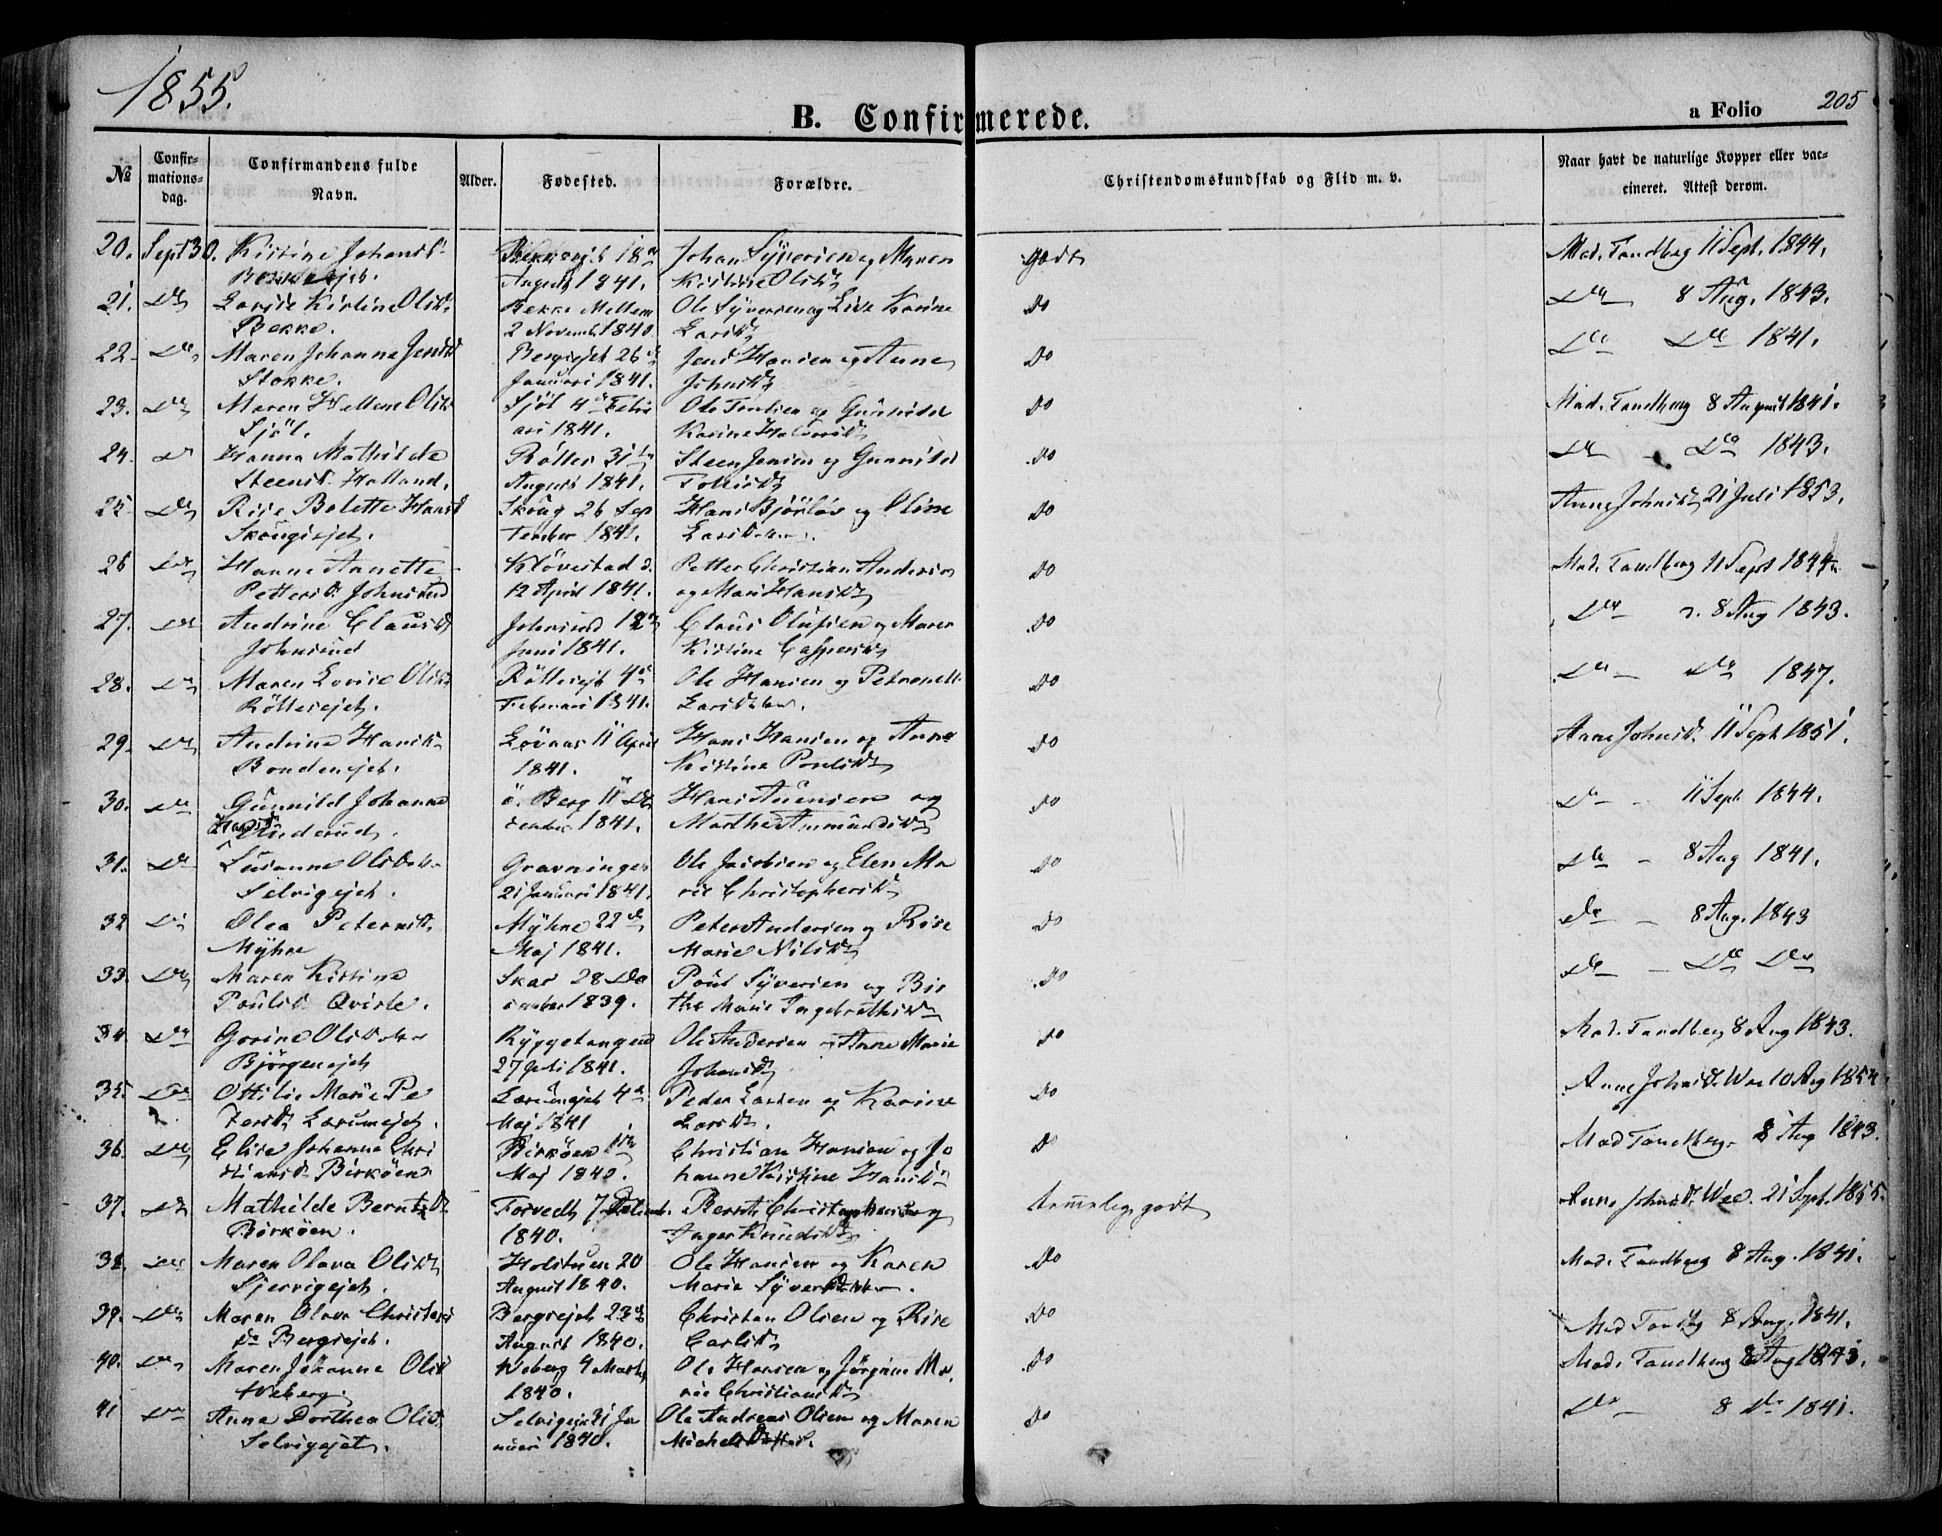 1855.
B. Confirmerede.
a Folio 205
№ Confirmations-dag. Confirmandens fulde Navn. Alder. Fødested. Forældre. Christendomskundskab og Flid m. v. Naar havt de naturlige Kopper eller vaccineret. Attest derom.
20. Sept 30. Kirstine Johansd. 18de Johan Syversen og Maren godt Mad. Tandberg 11 Sept. 1844.
August 1841. Kristine Olsd.
21. Do Kirstine Olsd. Bekke Mellem Ole Syversen og Lise Karine Do Do 8 Aug. 1843.
Bekke. 2 Novemb. 1840 Larsd.
22. Do Maren Johanne Jensd. Bergsejet 26de Jens Hansen og Anne Do Do Do 1841.
Stokke. Januari 1841. Johnsd.
23. Do Maren Hellene Olsd. Sjøl 4de Febru Ole Paulsen og Gunnild Do Mad. Tandberg 8 August 1841.
Sjøl. ari 1841. Karine Halvorsd.
24. Do Hanna Mathilde Røller 31te Steen Jensen og Gunnild Do Do Do 1843.
Steensd. Holland. August 1841.
25. Do Rise Bolette Hansd. Skoug 26 Sep Hans Bjørløv og Oline Do Anne Johnsd. 21 Juli 1853.
Skougsejet. tember 1841. Larsdatter.
26 Do Hanne Annette Kløvestad d. Petter Christian Andersen Do Mad. Tandberg 11 Sept 1844.
Pettersd. Johnsrud 12 April 1841. og Mari Hansd.
27. Do Andrine Clausd. Johnsrud 12te Claus Olufsen og Maren Do Do d. 8 Aug 1843.
Johnsrud Juni 1841. Kirstine Caspersd.
28. Do Maren Lovise Olsd. Røttesejet 4de Ole Hansen og Petronelle Do Do Do 1847.
Røttesejet. Februari 1841. Larsdatter.
29. Do Andrine Hansd. Løvaas 11 April Hans Hansen og Anne Do Anne Johnsd. 11 Sept 1851.
Bondesejet. 1841. Kirstine Poulsd.
30. Do Gunnild Johanne ö. Berg 11 De Hans Auensen og Do Do 11 Sept 1844.
Hansd. Anderud. cember 1841. Marthe Ammundsd.
31. Do Susanne Olsdatter Gravningen Ole Jacobsen og Elen Ma Do Do 8 Aug 1841.
Selvigejet. 21 Januari 1841. rie Christophersd.
32 Do Olea Petersd. Myhre 22de Peter Andersen og Rise Do Do 8 Aug. 1843
Myhre Maj 1841. Marie Nilsd.
33. Do Maren Kirstine Skar 28 De Poul Syversen og Bir Do Do Do Do
Poulsd. Qvisle. cember 1839. the Marie Ingebrethsd.
34. Do Gorine Olsdatter Ryggetangen Ole Andersen og Anne Marie Do Mad. Tandberg 8 Aug 1843.
Bjørgeneejet 27 Juli 1841. Johansd.
35. Do Ottilie Marie Pe Larumejet 4de Peder Larsen og Karine Do Anne Johnsd. Wee 10 Aug 1854
tersd. Larumejet. Maj 1841 Larsd.
36. Do Elise Johanne Chri Birkøen Christian Hansen og Jo Do Mad Tandberg. 8 Aug 1843.
stiansd. Birkøen. Maj 1840. hanne Kirstine Hansd.
37. Do Mathilde Berntsd. 7 Bernt Christophersen og temmelig godt Anne Johnsd. Wee. 21 Sept. 1855.
Birkøen. 1840. Inger Knudsd.
38. Do Maren Olava Olsd. 20 Ole Hansen og Karen Do Mad. Tandberg 8 Aug. 1841.
August 1840. Marie Syversdatter.
39. Do Maren Olava Christensd Bergsejet 23de Christen Olsen og Rise Do Mad 8 Aug. 1841.
Bergsejet. August 1840. Carlsd.
40. Do Maren Johanne Olsd. Weberg 4 Marts Ole Hansen og Jørgine Ma Do Mad. Tandberg 8 Aug 1843.
Weberg. 1840. rie Christiansd.
41 Do Anne Dorthea Olsd. Selvigejet 21 Ja Ole Andreas Olsen og Maren Do Do 8 Do 1841.
Selvigejet. nuari 1840. Michelsdatter.